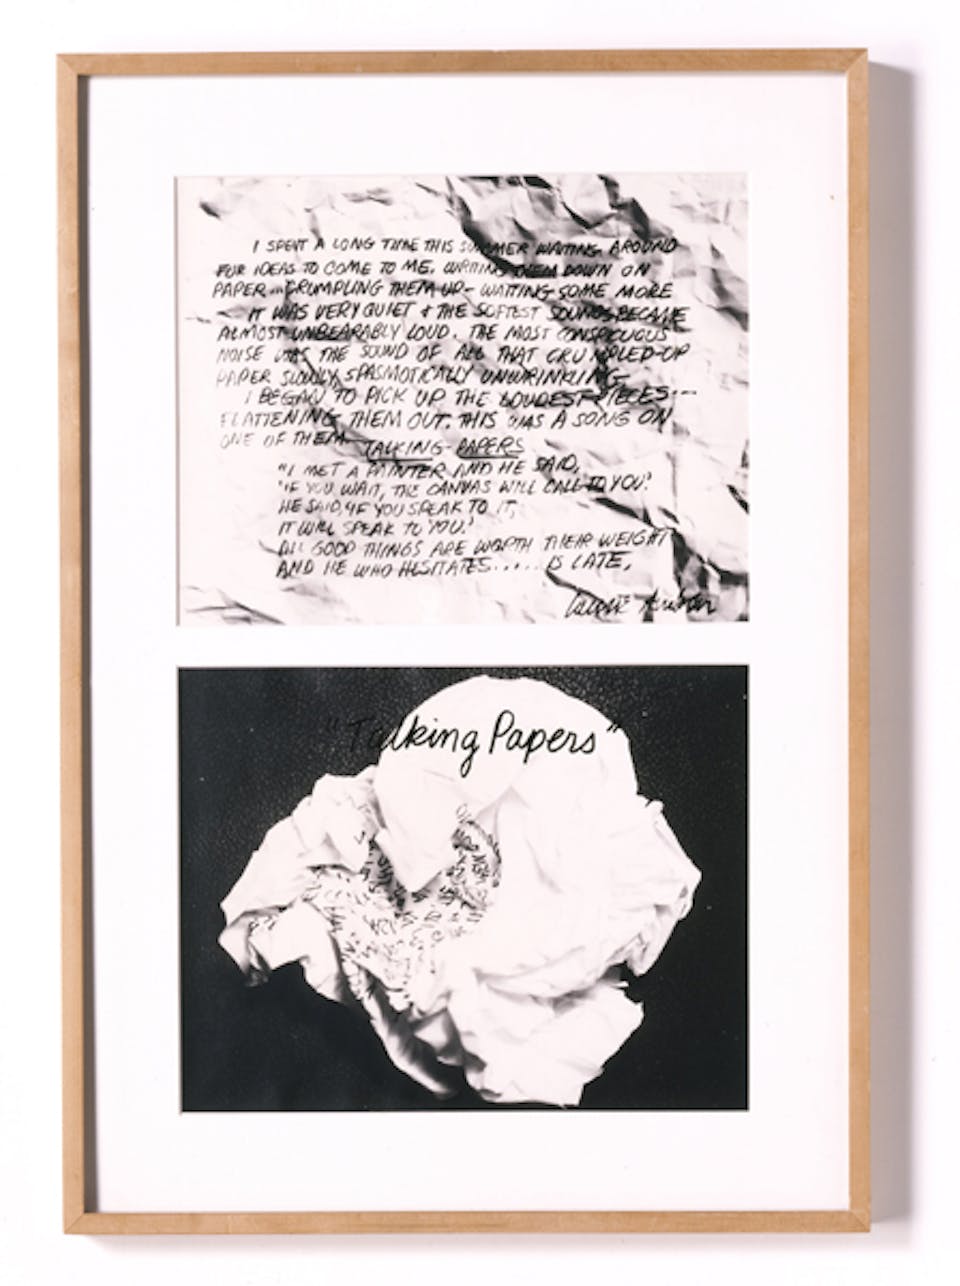 I SPENT A LONG TIME THIS SUMMER WAITING AROUND
FOR IDEAS TO COME TO ME. WRITING THEM DOWN ON
PAPER... CRUMPLING THEM UP - WAITING SOME MORE
IT WAS VERY QUIET & THE SOFTEST SOUNDS BECAME
ALMOST UNBEARABLY LOUD. THE MOST CONSPICUOUS
NOISE WAS THE SOUND OF ALL THAT CRUMPLED-UP
PAPER SLOWLY, SPASMOTICALLY UNWRINKLING.
I BEGAN TO PICK UP THE LOUDEST PIECES---
FLATTENING THEM OUT. THIS WAS A SONG ON
ONE OF THEM
TALKING-PAPERS
"I MET A PAINTER AND HE SAID,
'IF YOU WAIT, THE CANVAS WILL CALL TO YOU.'
HE SAID, 'IF YOU SPEAK TO IT,
IT WILL SPEAK TO YOU.'
ALL GOOD THINGS ARE WORTH THEIR WEIGHT
AND HE WHO HESITATES..... IS LATE.
"Talking Papers"